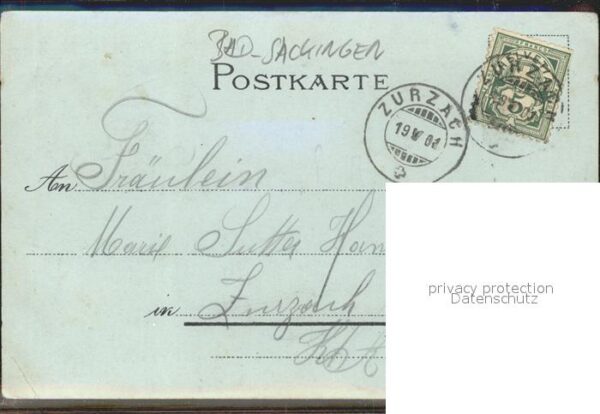 BAD-SÄCKINGEN
POSTKARTE
ZURZACH
19 V 01
ZURZACH
5
An Fräulein
Marie Sutter
in Zurzach
privacy protection
Datenschutz